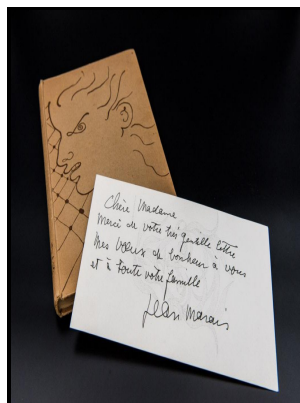 Chère Madame
merci de votre très gentille lettre
mes vœux de bonheur à vous
et à toute votre famille
Jean Marais